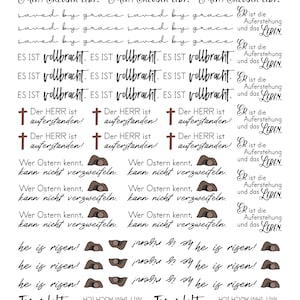 saved by grace saved by grace saved by grace
saved by grace saved by grace saved by grace
saved by grace saved by grace saved by grace
ES IST vollbracht. ES IST vollbracht. ES IST vollbracht.
ES IST vollbracht. ES IST vollbracht. ES IST vollbracht.
ES IST vollbracht. ES IST vollbracht. ES IST vollbracht.
Der HERR ist auferstanden! Der HERR ist auferstanden! Der HERR ist auferstanden!
Der HERR ist auferstanden! Der HERR ist auferstanden! Der HERR ist auferstanden!
Wer Ostern kennt, kann nicht verzweifeln. Wer Ostern kennt, kann nicht verzweifeln.
Wer Ostern kennt, kann nicht verzweifeln. Wer Ostern kennt, kann nicht verzweifeln.
Wer Ostern kennt, kann nicht verzweifeln. Wer Ostern kennt, kann nicht verzweifeln.
he is risen! he is risen! he is risen!
he is risen! he is risen! he is risen!
ER ist die
Auferstehung
und das LEBEN
ER ist die
Auferstehung
und das LEBEN
ER ist die
Auferstehung
und das LEBEN
ER ist die
Auferstehung
und das LEBEN
ER ist die
Auferstehung
und das LEBEN
ER ist die
Auferstehung
und das LEBEN